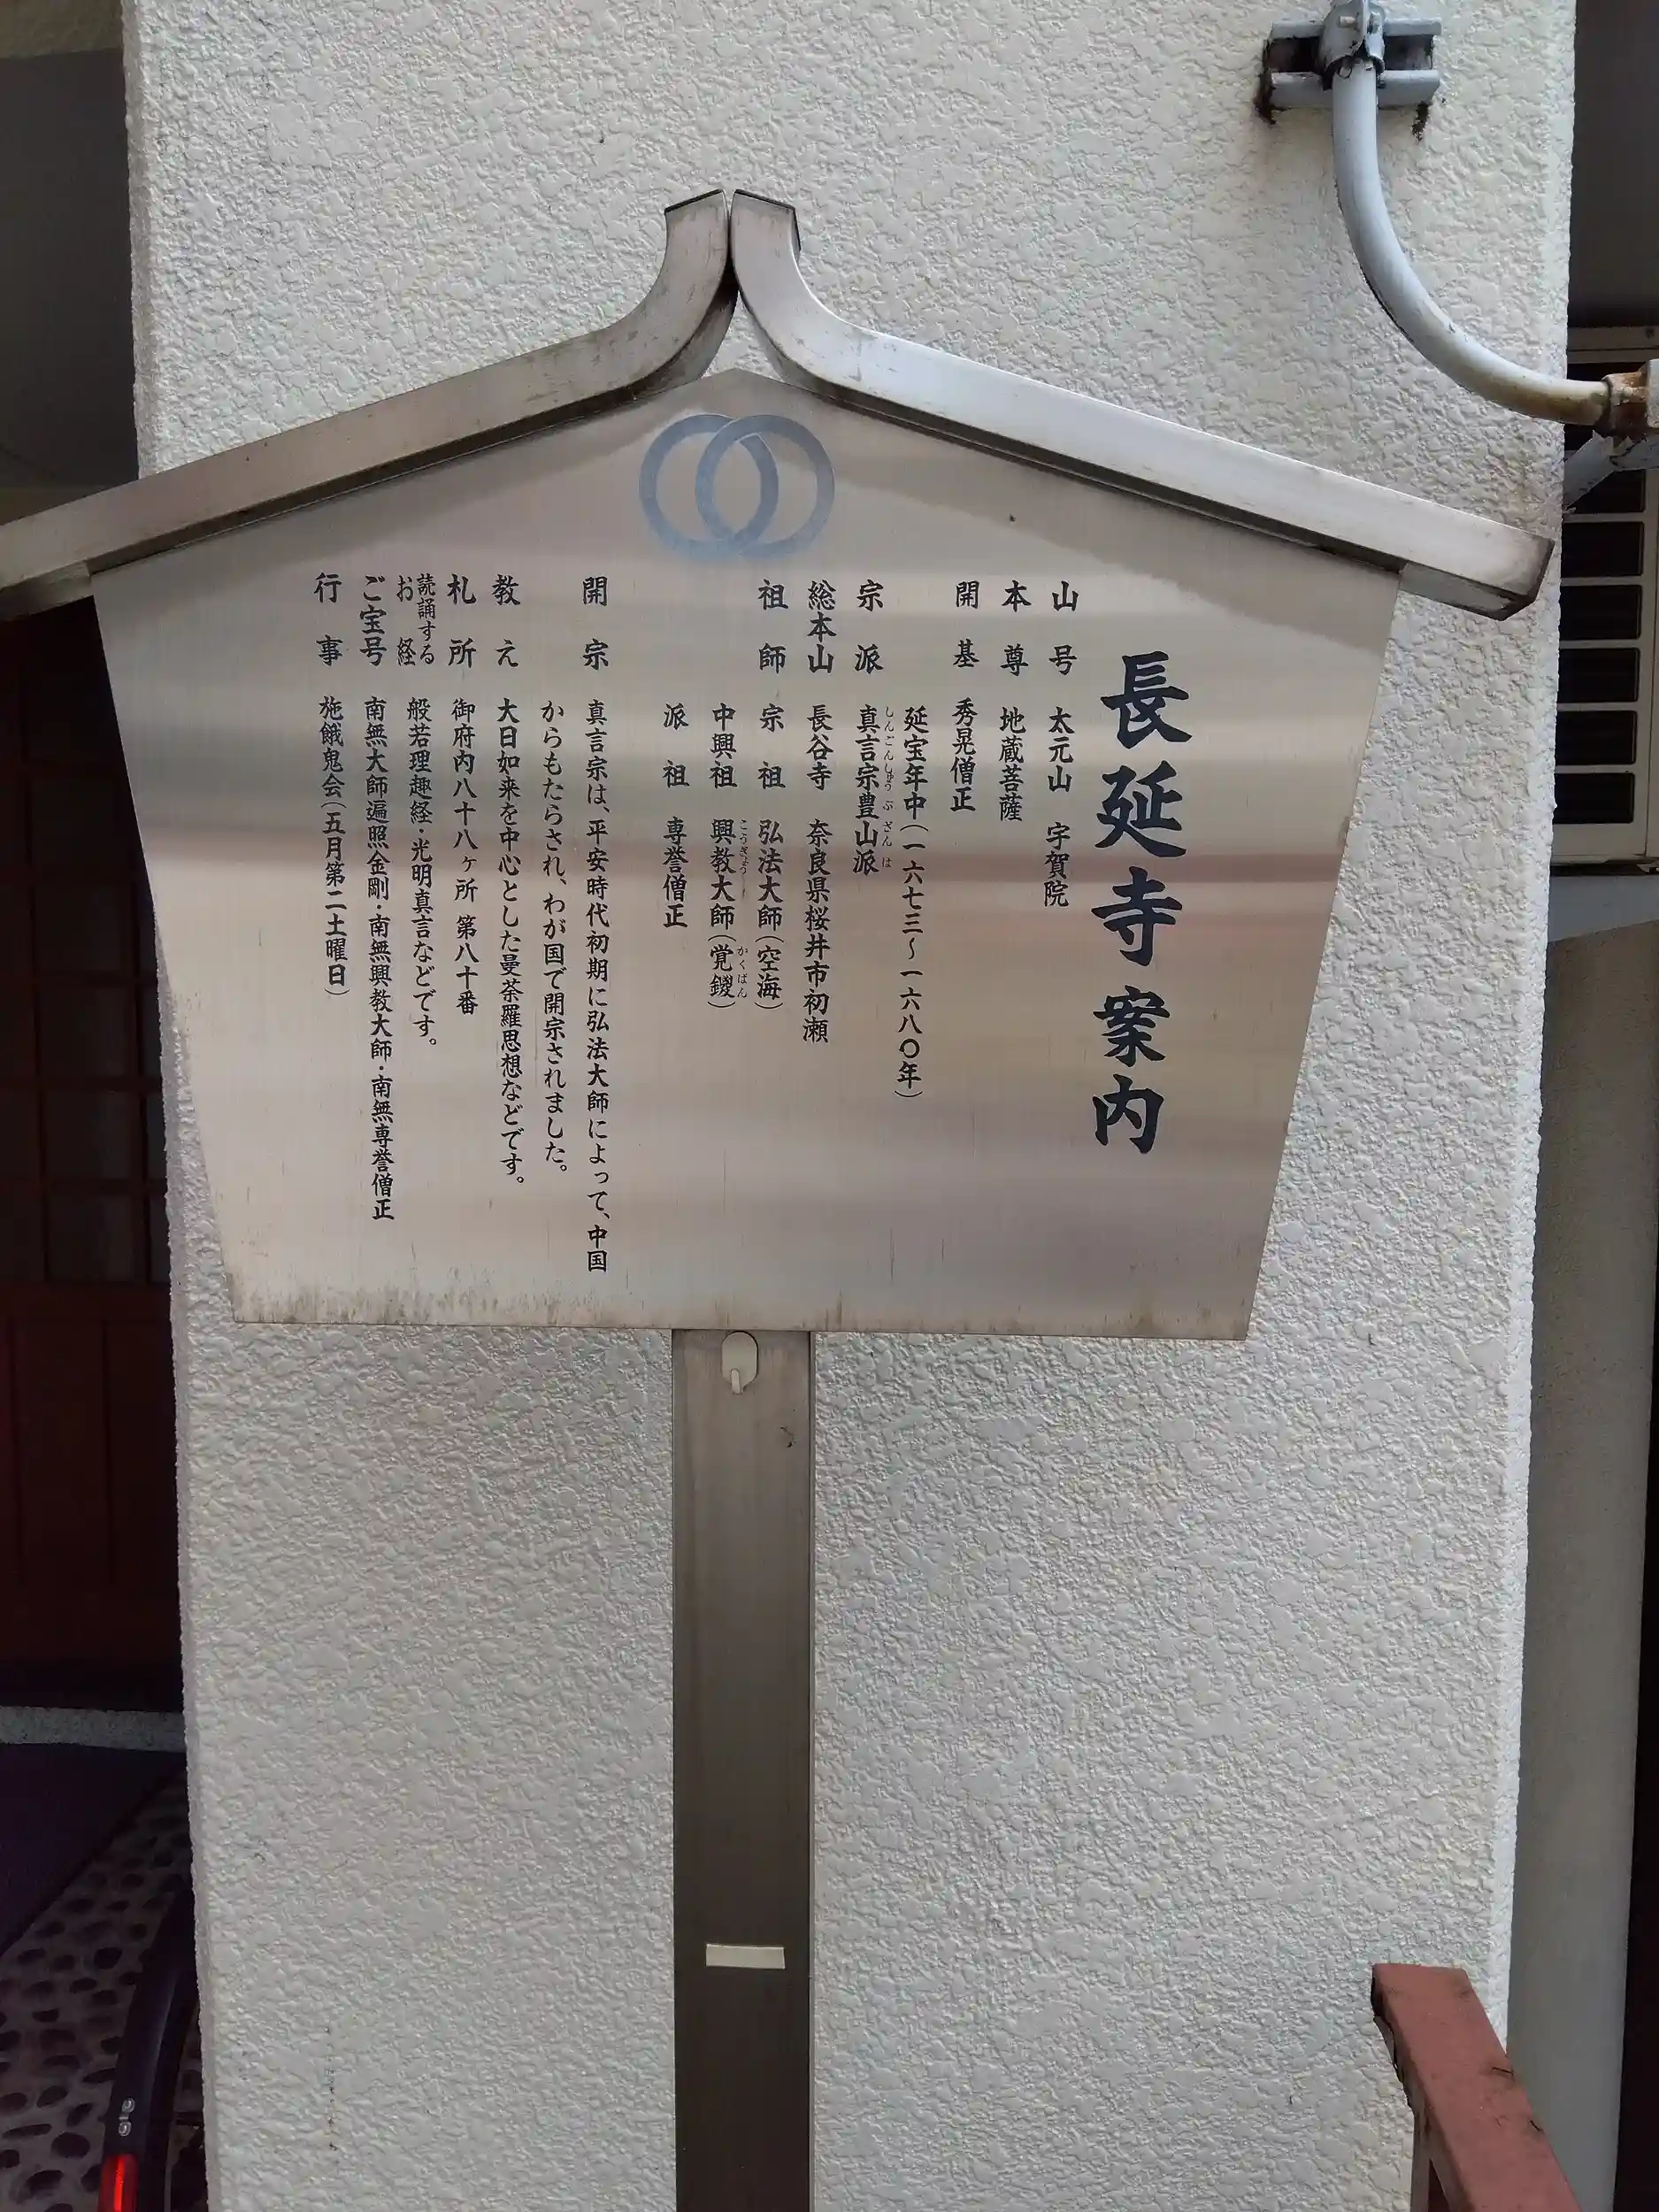 長延寺案内
山号 太元山 宇賀院
本尊 地蔵菩薩
開基 秀晃僧正
延宝年中(一六七三〜一六八〇年)
宗派 真言宗豊山派
しんごんしゅう ぶ ざん は
総本山 長谷寺 奈良県桜井市初瀬
祖師 宗祖 弘法大師(空海)
中興祖 興教大師(覚鑁)
こうぎょう かくばん
派祖 専誉僧正
開宗 真言宗は、平安時代初期に弘法大師によって、中国
からもたらされ、わが国で開宗されました。
教え 大日如来を中心とした曼荼羅思想などです。
札所 御府内八十八ヶ所 第八十番
読誦する
お経 般若理趣経・光明真言などです。
ご宝号 南無大師遍照金剛・南無興教大師・南無専誉僧正
行事 施餓鬼会(五月第二土曜日)